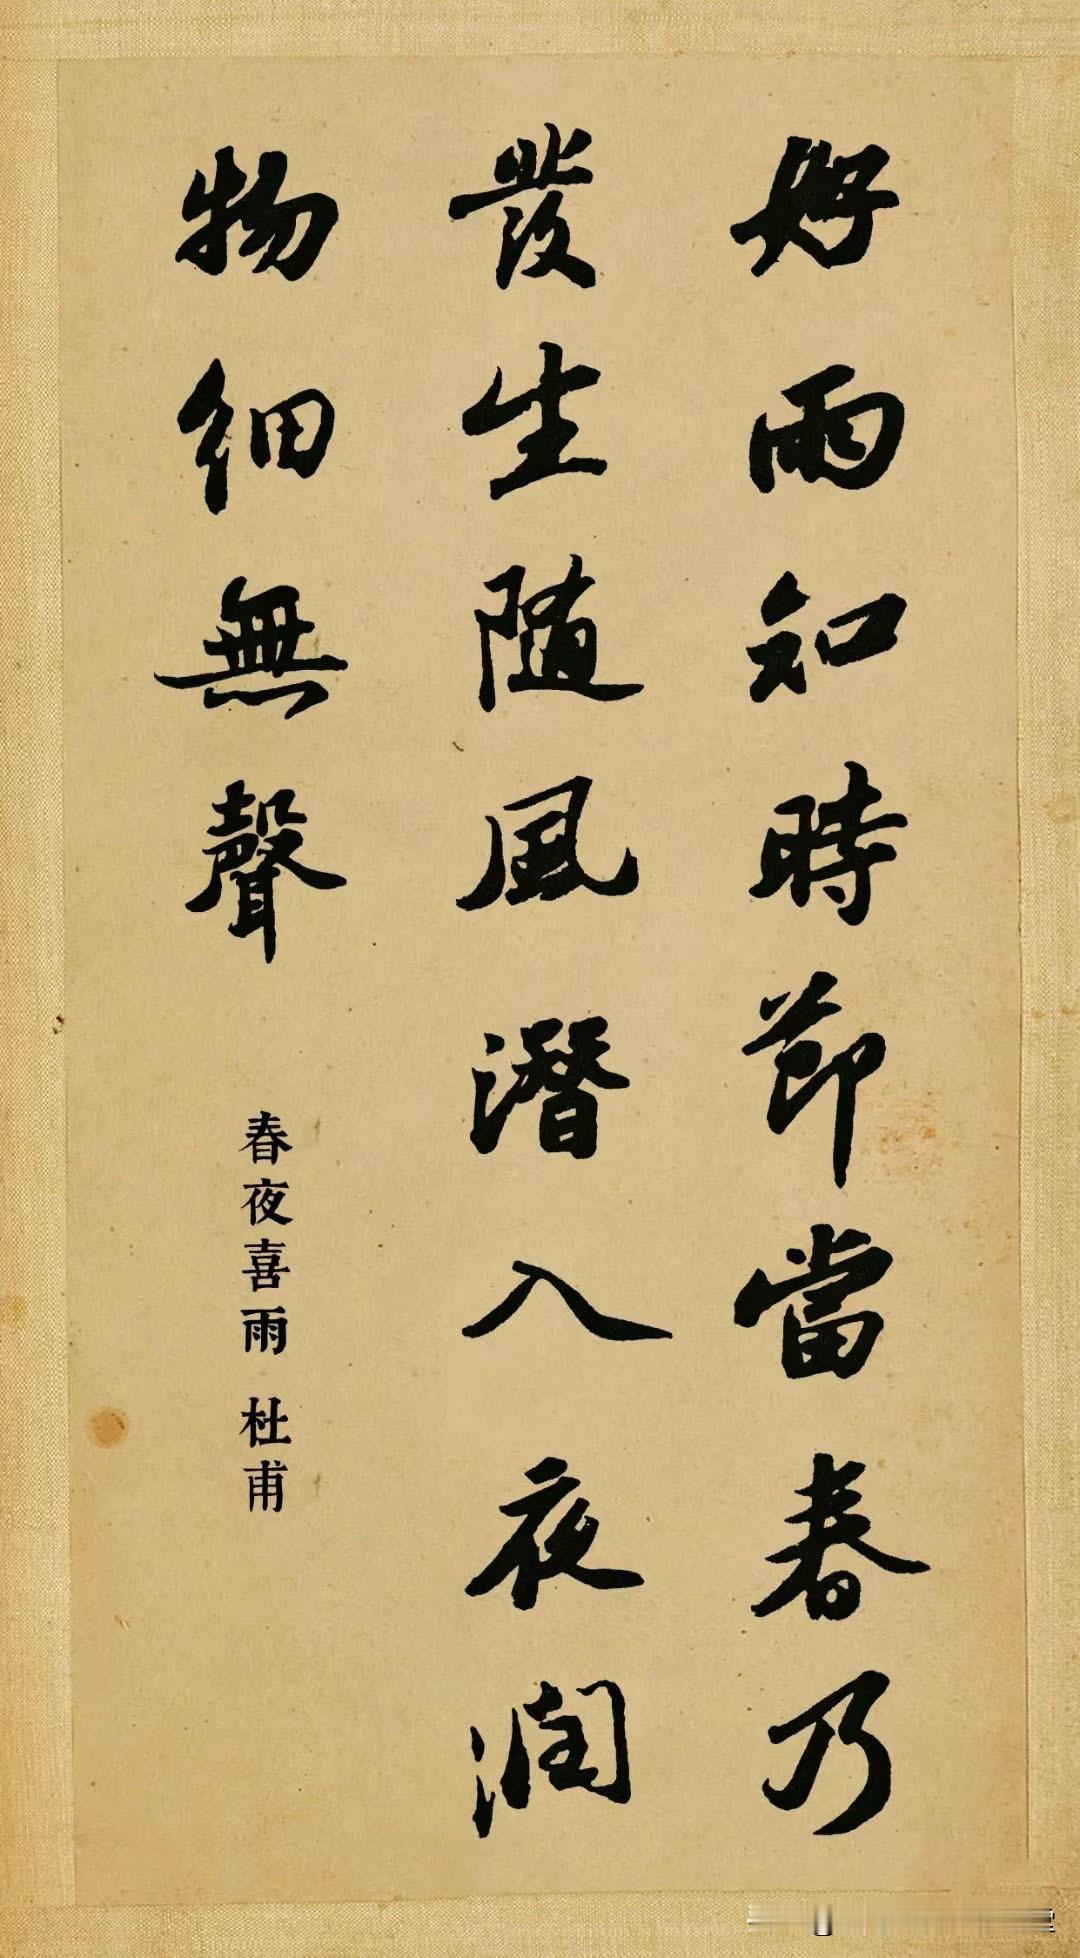 好雨知時節當春乃
發生隨風潛入夜潤
物細無聲
春夜喜雨 杜甫